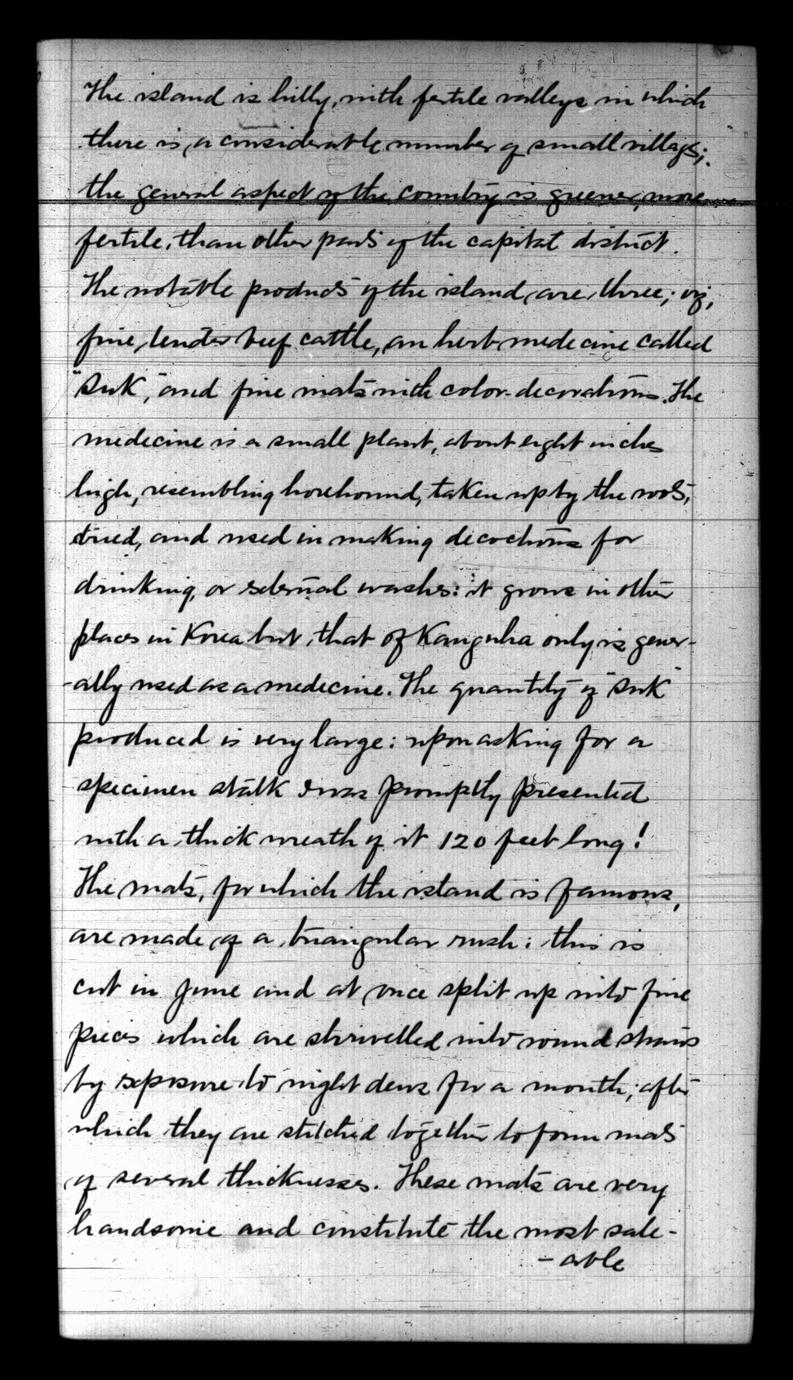 The island is hilly, with fertile valleys in which
there is a considerable number of small villages;
the general aspect of the country is greener, more
fertile, than other parts of the capital district.
The notable products of the island, are, three; viz,
fine, tender beef cattle, an herb medecine called
"Suk", and fine mats with color-decorations. The
medecine is a small plant, about eight inches
high, resembling horehound, taken up by the roots,
dried, and used in making decoctions for
drinking, or external washes: it grows in other
places in Korea but, that of Kangwha only is gener-
-ally used as a medecine. The quantity of "Suk"
produced is very large: upon asking for a
specimen stalk I was promptly presented
with a thick wreath of it 120 feet long!
The mats, for which the island is famous,
are made of a triangular rush: this is
cut in June and at once split up into fine
pieces which are shrivelled into round strains
by exposure to night dews for a month; after
which they are stitched together to form mats
of several thicknesses. These mats are very
handsome and constitute the most sale-
-able